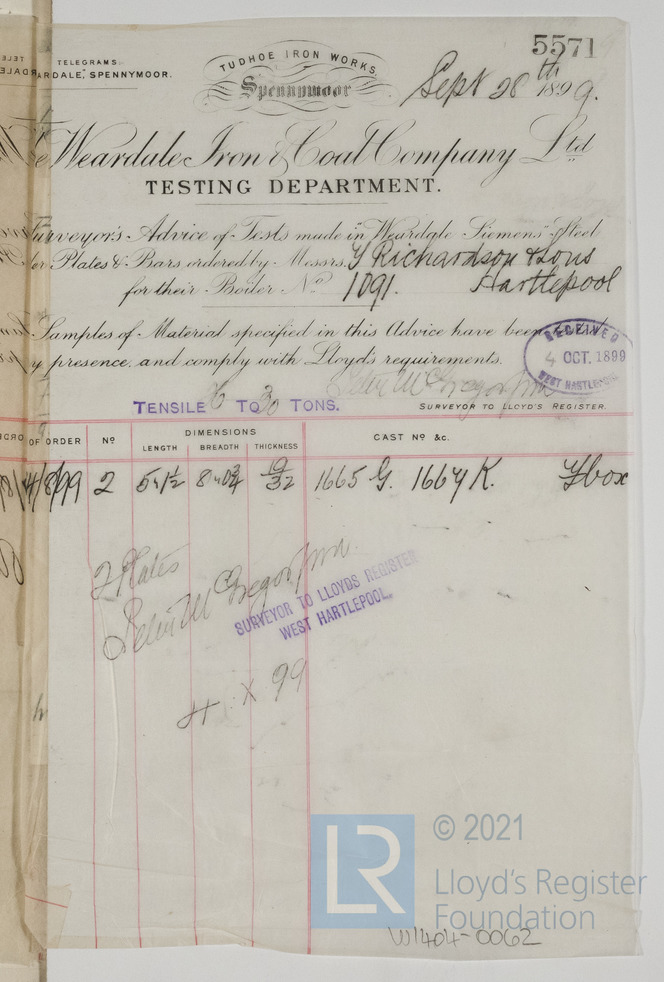 5571
TELEGRAMS.
ARDALE, SPENNYMOOR.
TUDHOE IRON WORKS,
Spennymoor
Sept 28th 1899.
e Weardale Iron & Coal Company Ltd
TESTING DEPARTMENT.
Surveyor's Advice of Tests made in "Weardale" Siemens' Steel
ler Plates & Bars, ordered by Messrs. T Richardson & Sons
for their Boiler No 1091. Hartlepool
Samples of Material specified in this Advice have been
y presence, and comply with Lloyd's requirements.
RECEIVED
4 OCT. 1899
WEST HARTLEPOOL
TENSILE 26 TO 30 TONS.
SURVEYOR TO LLOYD'S REGISTER.
OF ORDER No DIMENSIONS CAST No &c.
LENGTH BREADTH THICKNESS
4/8/99 2 5·1½ 8·0¾ 19/32 1665 G. 1664 K. Fbox
2 Plates
Peter McGregor
SURVEYOR TO LLOYDS REGISTER
WEST HARTLEPOOL.
4 · X 99
LR
© 2021
Lloyd's Register
Foundation
W1404-0062